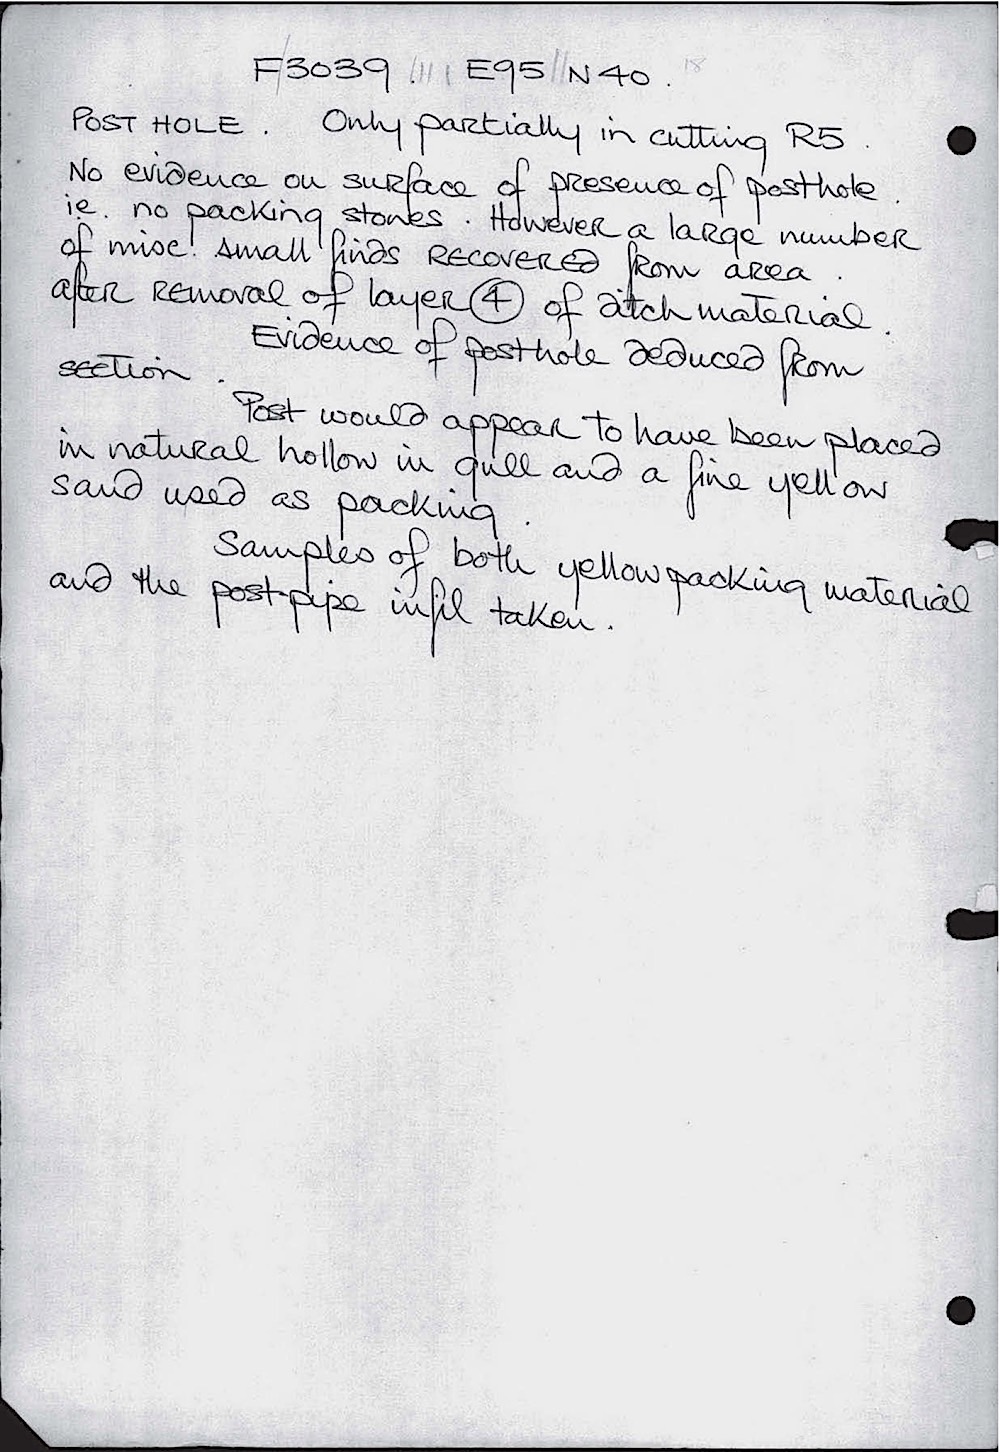 F3039 E95 N40.
POST HOLE. Only partially in cutting R5.
No evidence on surface of presence of posthole.
ie. no packing stones. However a large number
of misc. small finds RECOVERED from area.
after REMOVAL of layer ④ of ditch material.
Evidence of posthole deduced from
section.
Post would appear to have been placed
in natural hollow in gull and a fine yellow
sand used as packing.
Samples of both yellow packing material
and the post-pipe infil taken.